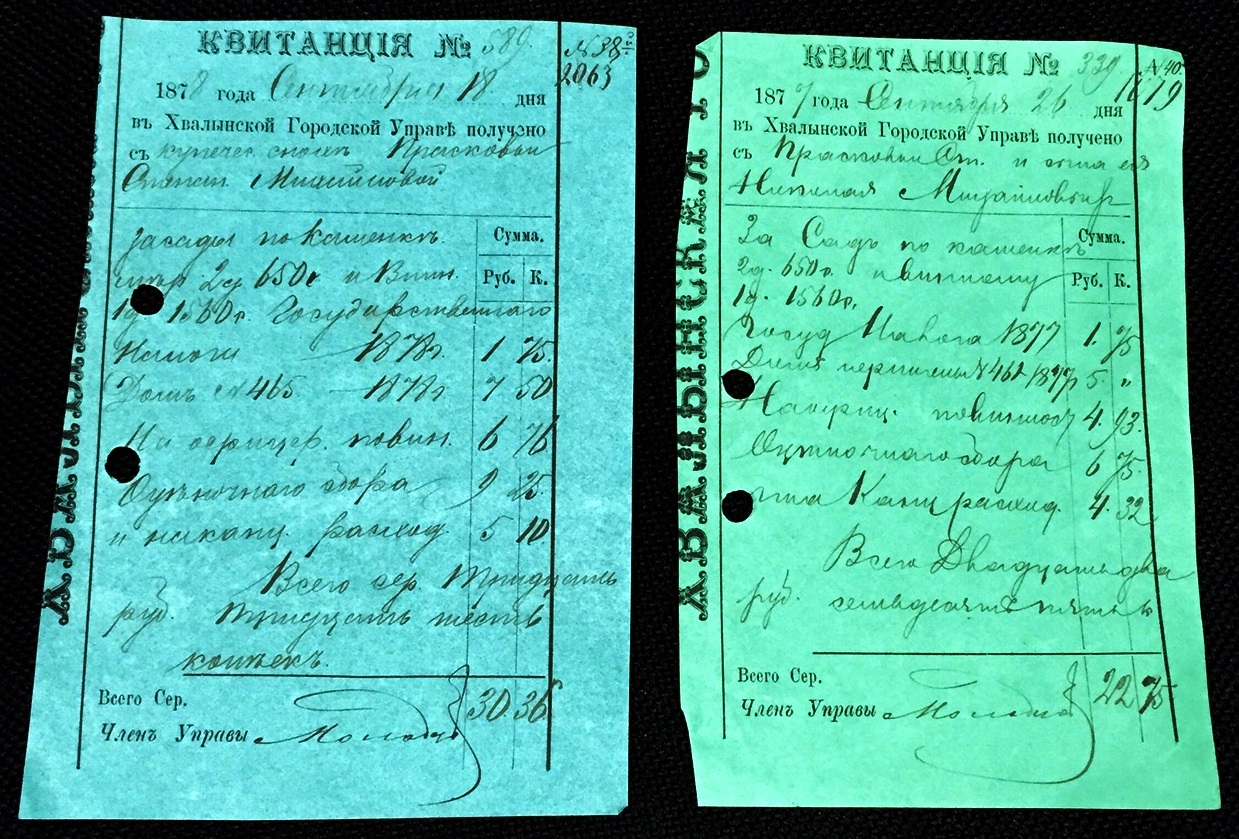 КВИТАНЦІЯ № 589.
N 38
2063
1878 года Сентября 18 дня
въ Хвалынской Городской Управѣ получено
съ купечес. Прасковьи
Степан. Михайловой
засады по Каменкѣ
2д 650с и
1д 1560с. Государственнаго
Налога 1878г. 1 75.
Домъ № 465 1878г 7 50
повин. 6 76
Оцѣночнаго сбора 9 25.
и на канц. расход. 5 10
Всего сер. Тридцать
руб. тридцать шесть
копѣекъ.
Сумма.
Руб. К.
Всего Сер. 30. 36
Членъ Управы
ХВАЛЫНСКАЯ
КВИТАНЦІЯ № 339.
N 40.
1619
1877 года Сентября 26 дня
въ Хвалынской Городской Управѣ получено
съ Прасковьи Ст. и сына ея
Николая Михайловыхъ
За Садъ по каменкѣ
2д. 650с.
1д. 1560с.
Сумма.
Руб. К.
Госуд Налога 1877 1. 75
1877г 5. "
повинност 4. 93.
Оцѣночнаго сбора 6 75.
на Канц расход. 4. 32
Всего Двадцать два
руб. семьдесятъ пять к
Всего Сер. 22 75
Членъ Управы
ХВАЛЫНСКАЯ ГО